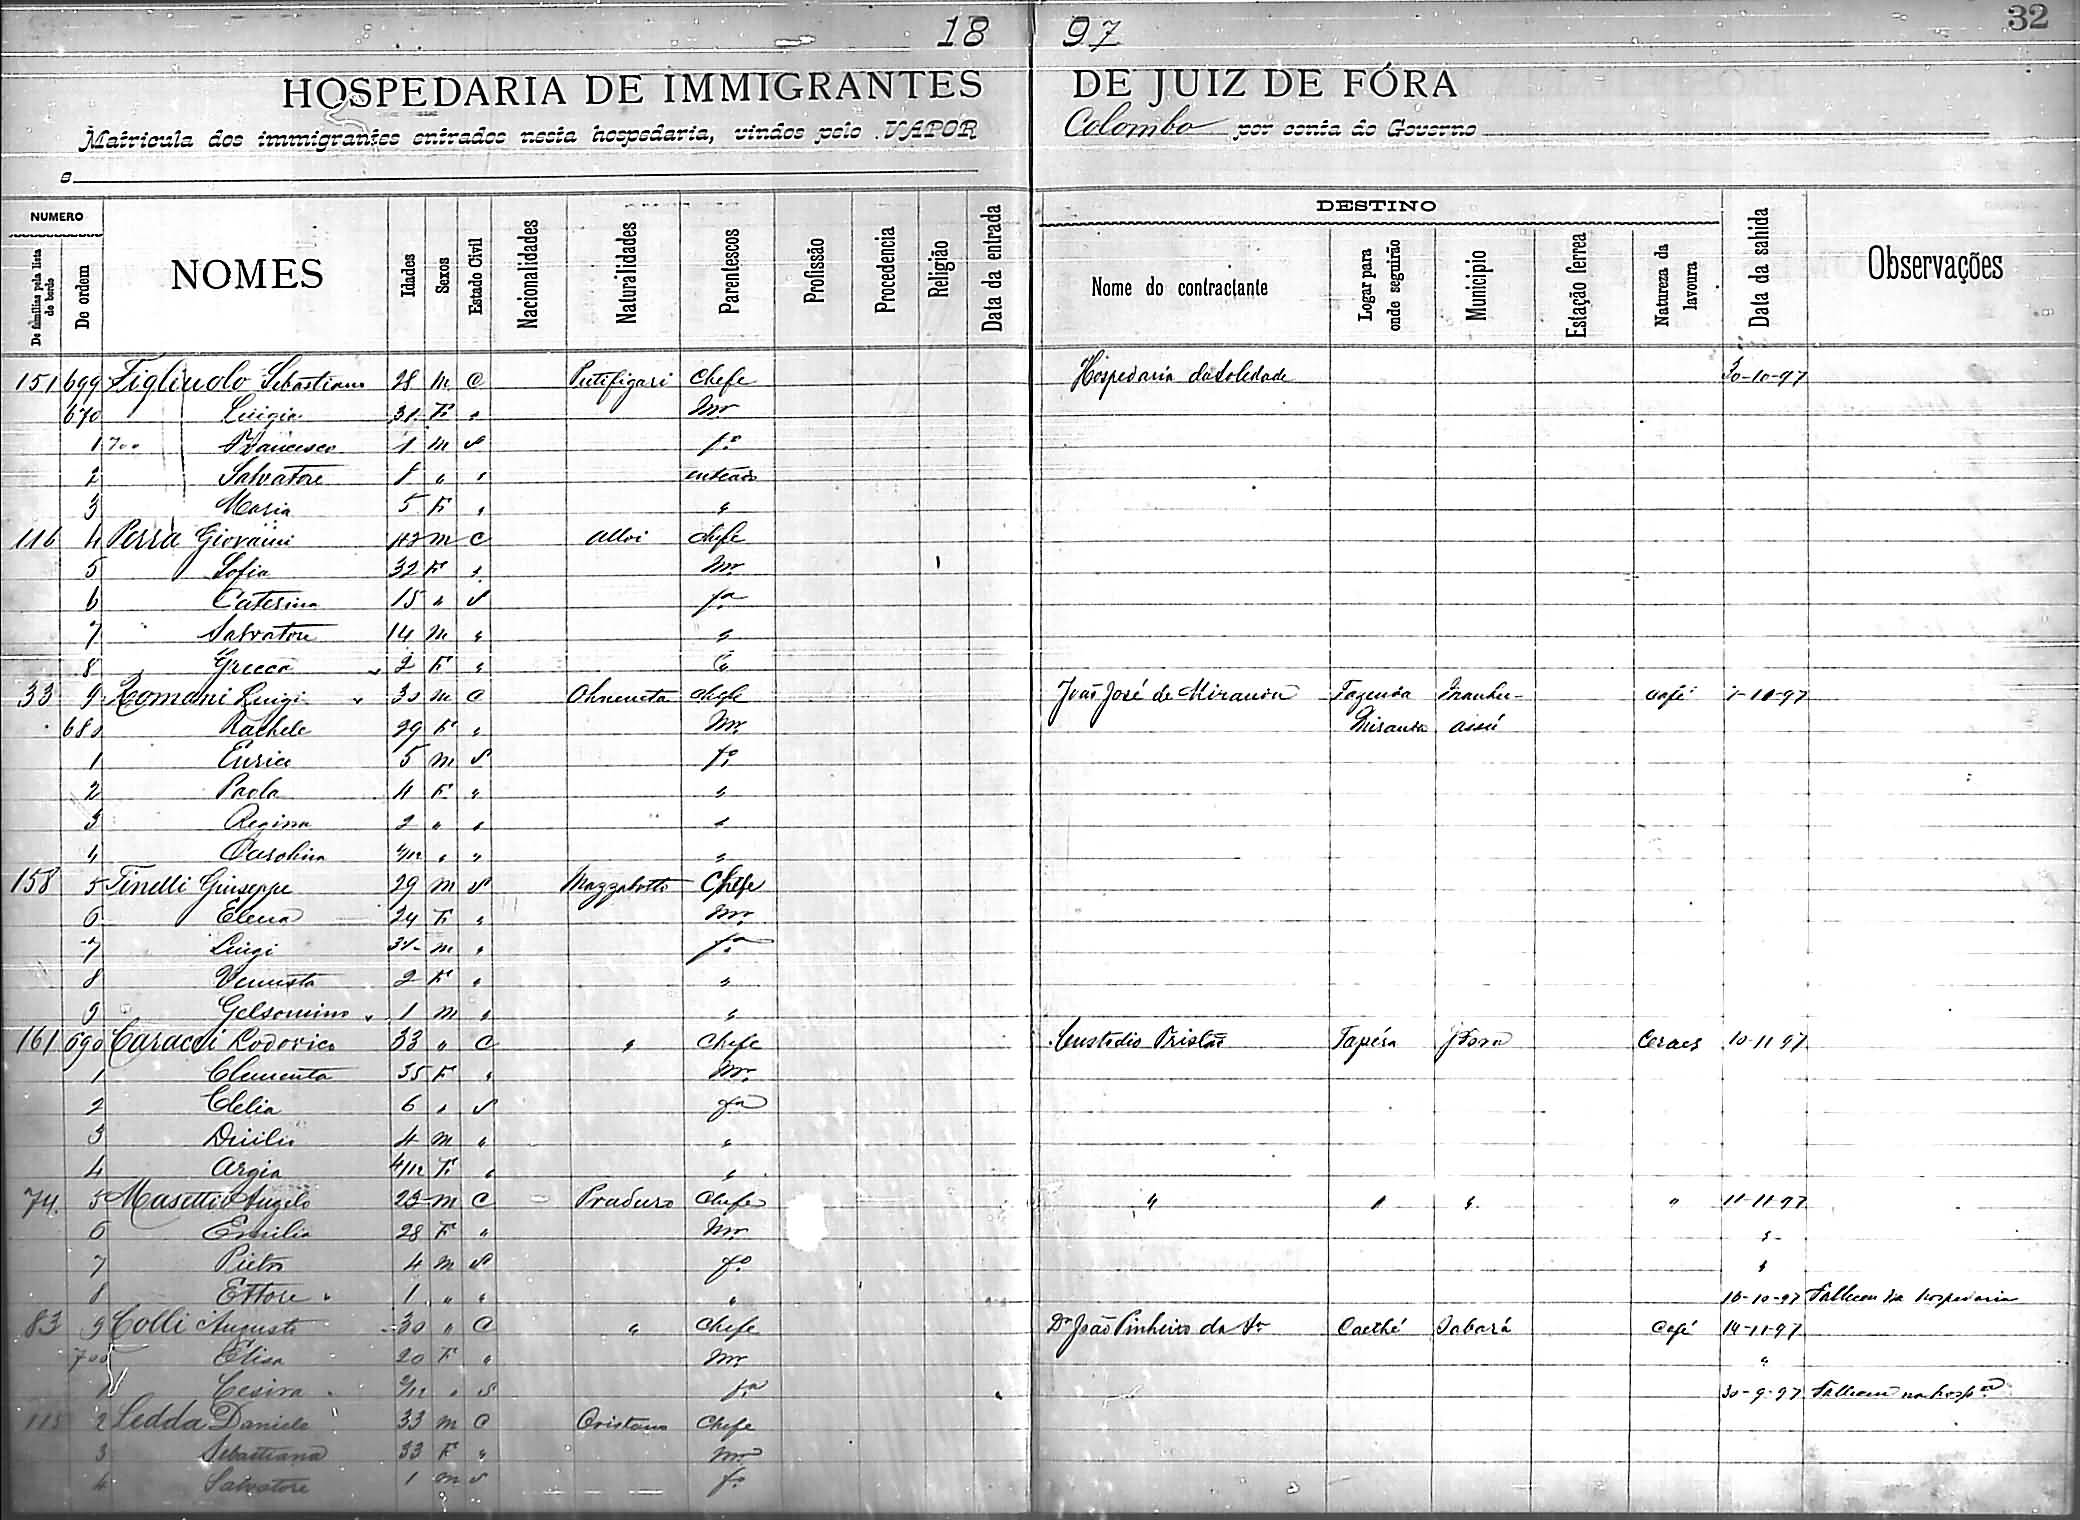 32
18 97
HOSPEDARIA DE IMMIGRANTES DE JUIZ DE FÓRA
Matricula dos immigrantes entrados nesta hospedaria, vindos pelo VAPOR Colombo por conta do Governo
a
NUMERO DESTINO
De familias pela lista de bordo De ordem NOMES Idades Sexos Estado Civil Nacionalidades Naturalidades Parentescos Profissão Procedencia Religião Data da entrada Nome do contractante Logar para onde seguirão Municipio Estação ferrea Natureza da lavoura Data da sahida Observações
151 699 Figliuolo Sebastiano 28 M C Putifigari Chefe Hospedaria da Soledade 30-10-97
670 Luigia 31 F " Mr
1 700 Francesco 1 M S fo
2 Salvatore " " enteado
3 Maria 5 F " "
116 4 Porra Giovanni 42 M C Chefe
5 Sofia 32 F " Mr
6 Caterina 15 " S fa
7 Salvatore 14 M " "
8 Greca 2 F " "
33 9 Romani Luigi 30 M C Chefe João José de Miranda Fazenda Manhu- café 1-10-97
680 Rachele 29 F " Mr Miranda assú
1 Enrico 5 M S fo
2 Paola 4 F " "
3 Regina 2 " " "
4 Carolina " " "
158 5 Tinelli Giuseppe 29 M S Chefe
6 Elena 24 F " Mr
7 Luigi M " fo
8 Venusta 2 F " "
9 Gelsomino 1 M " "
161 690 Caracci Lodovico 33 " C " Chefe Custodio Tristão Tapéra Ceraes 10-11-97
1 Clementa 35 F " Mr
2 Clelia 6 " S fa
3 Duilio 4 M " "
4 Argia 4/12 F " "
74 5 Masetti Angelo M C Praduro Chefe " " " " 11-11-97
6 Emilia 28 F " Mr "
7 Pietro 4 M S fo "
8 Ettore 1 " " " 16-10-97 Falleceu na hospedaria
83 9 Colli Augusto 30 " C " Chefe Dr João Pinheiro da Sa Caethé Sabará Café 14-11-97
700 Elisa 20 F " Mr "
1 Cesira " S fa 30-9-97 Falleceu na hospa
115 2 Ledda Daniele 33 M C Oristano Chefe
3 Sebastiana 33 F " Mr
4 Salvatore 1 M S fo